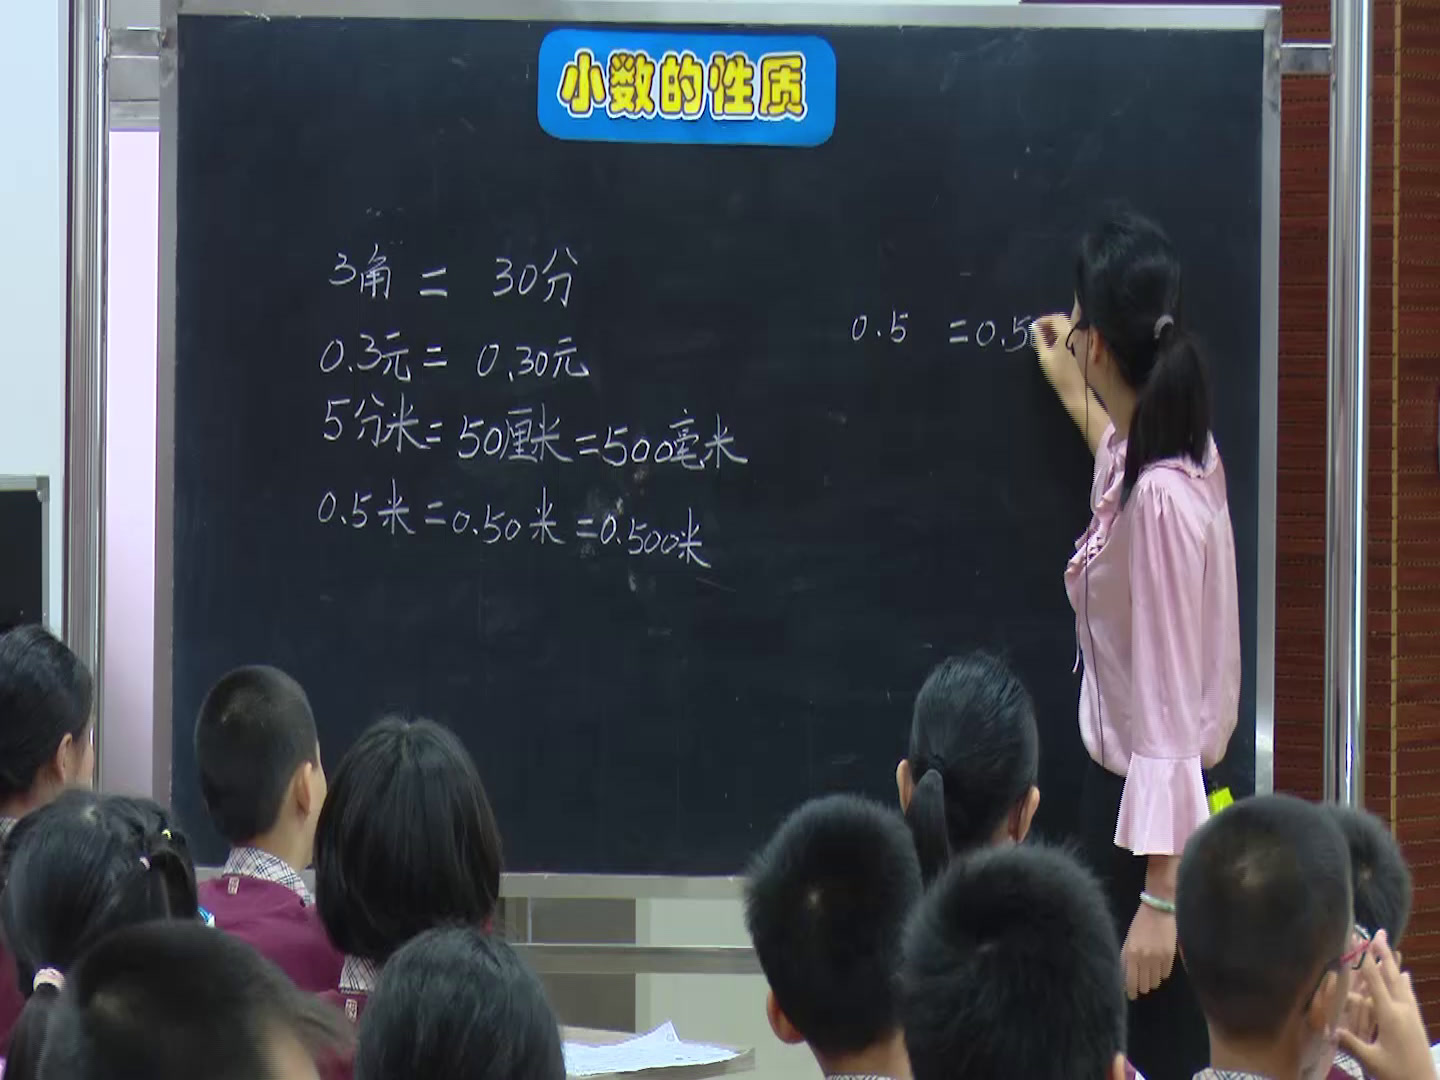 小数的性质
3角 = 30分
0.3元 = 0.30元
5分米=50厘米=500毫米
0.5米=0.50米=0.500米
0.5 =0.5